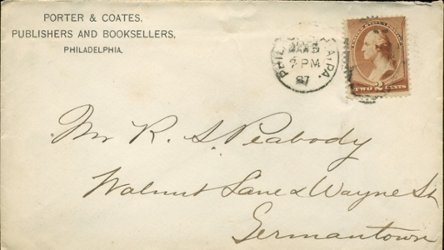 PORTER & COATES.
PUBLISHERS AND BOOKSELLERS,
PHILADELPHIA.
PHIL A, PA.
7 PM
87
TWO 2 CENTS
Mr R. S. Peabody
Walnut Lane & Wayne St
Germantown